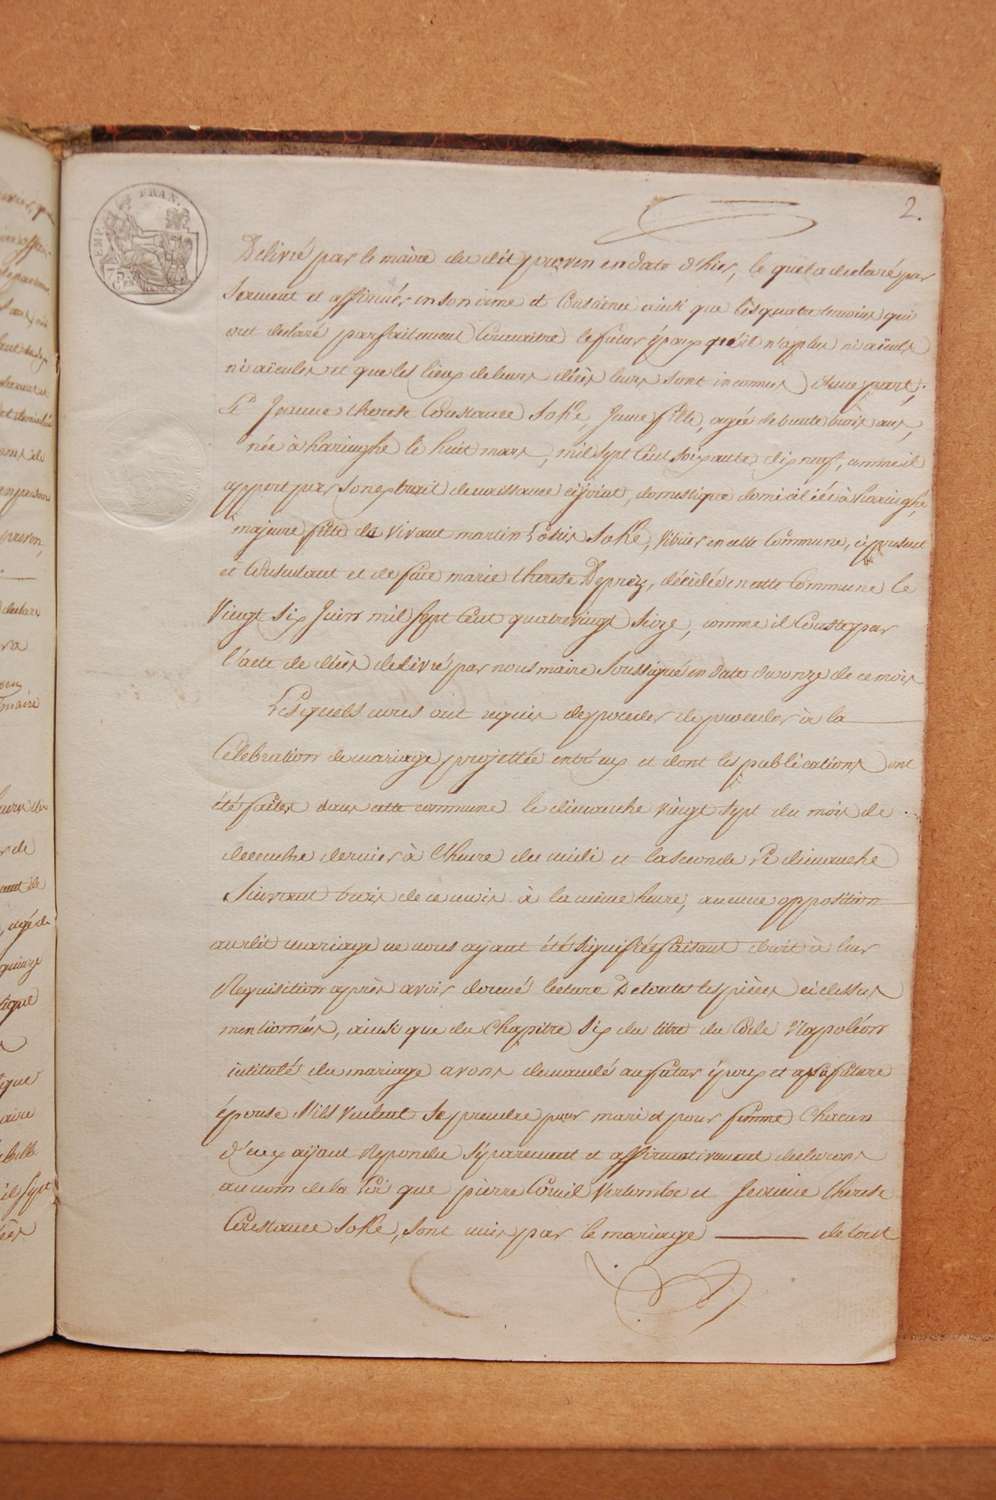 EMP. FRAN.
2.
Délivré par le maire du dit proven en date d'hier, le quel a declaré par
serment et affirmé, en son ame et Conscience ainsi que les quatre temoins qui
ont declaré parfaitement Connaitre le futur époux que il n'a plus ni aieuls
ni aieules et que les lieux de leurs décès leurs sont inconnus, d'une part,
Et Jeanne therese Constance Sohie, Jeune fille, agée de trente trois ans,
née à haringhe le huit mars, mil sept Cent soixante dix neuf, comme il
appert par son extrait de naissance cijoint, domestique domiciliée à haringhe,
majeure fille de vivant martin Louis Sohie, en cette Commune, ci présent
et Consentant et de feue marie therese Deprez, décédée en cette Commune le
Vingt six Juin mil sept Cent quatrevingt seize, comme il Conste par
l'acte de décès delivré par nous maire Soussigné en date du onze de ce mois
Lesquels nous ont requis de proceder de proceder à la
Célébration de mariage projettée entr'eux et dont les publications ont
été faites dans cette commune le dimanche vingt sept du mois de
decembre dernier à l'heure du midi et la seconde le dimanche
Suivant trois de ce mois à la même heure, aucune opposition
audit mariage ne nous ayant été signifiée faisant droit à leur
Requisition après avoir donné lecture De toutes les pièces ci dessus
mentionnées, ainsi que du Chapitre six du titre du Code Napoléon
intitulé du mariage avons demandé au futur époux et a la future
épouse s'ils veulent se prendre pour mari et pour femme Chacun
d'eux ayant Repondu séparement et affirmativement declarons
au nom de la Loi que pierre Cornil Vertombe et Jeanne therese
Constance Sohie, sont unis par le mariage ——— de tout